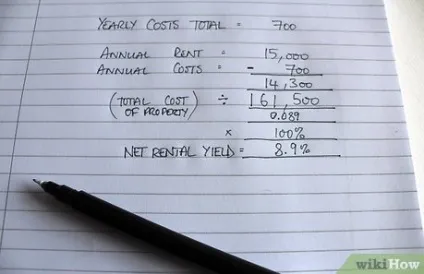 YEARLY COSTS TOTAL = 700
ANNUAL RENT = 15,000
ANNUAL COSTS = - 700
14,300
(TOTAL COST OF PROPERTY) ÷ 161,500
0.089
x 100%
NET RENTAL YIELD = 8.9%
wikiHow